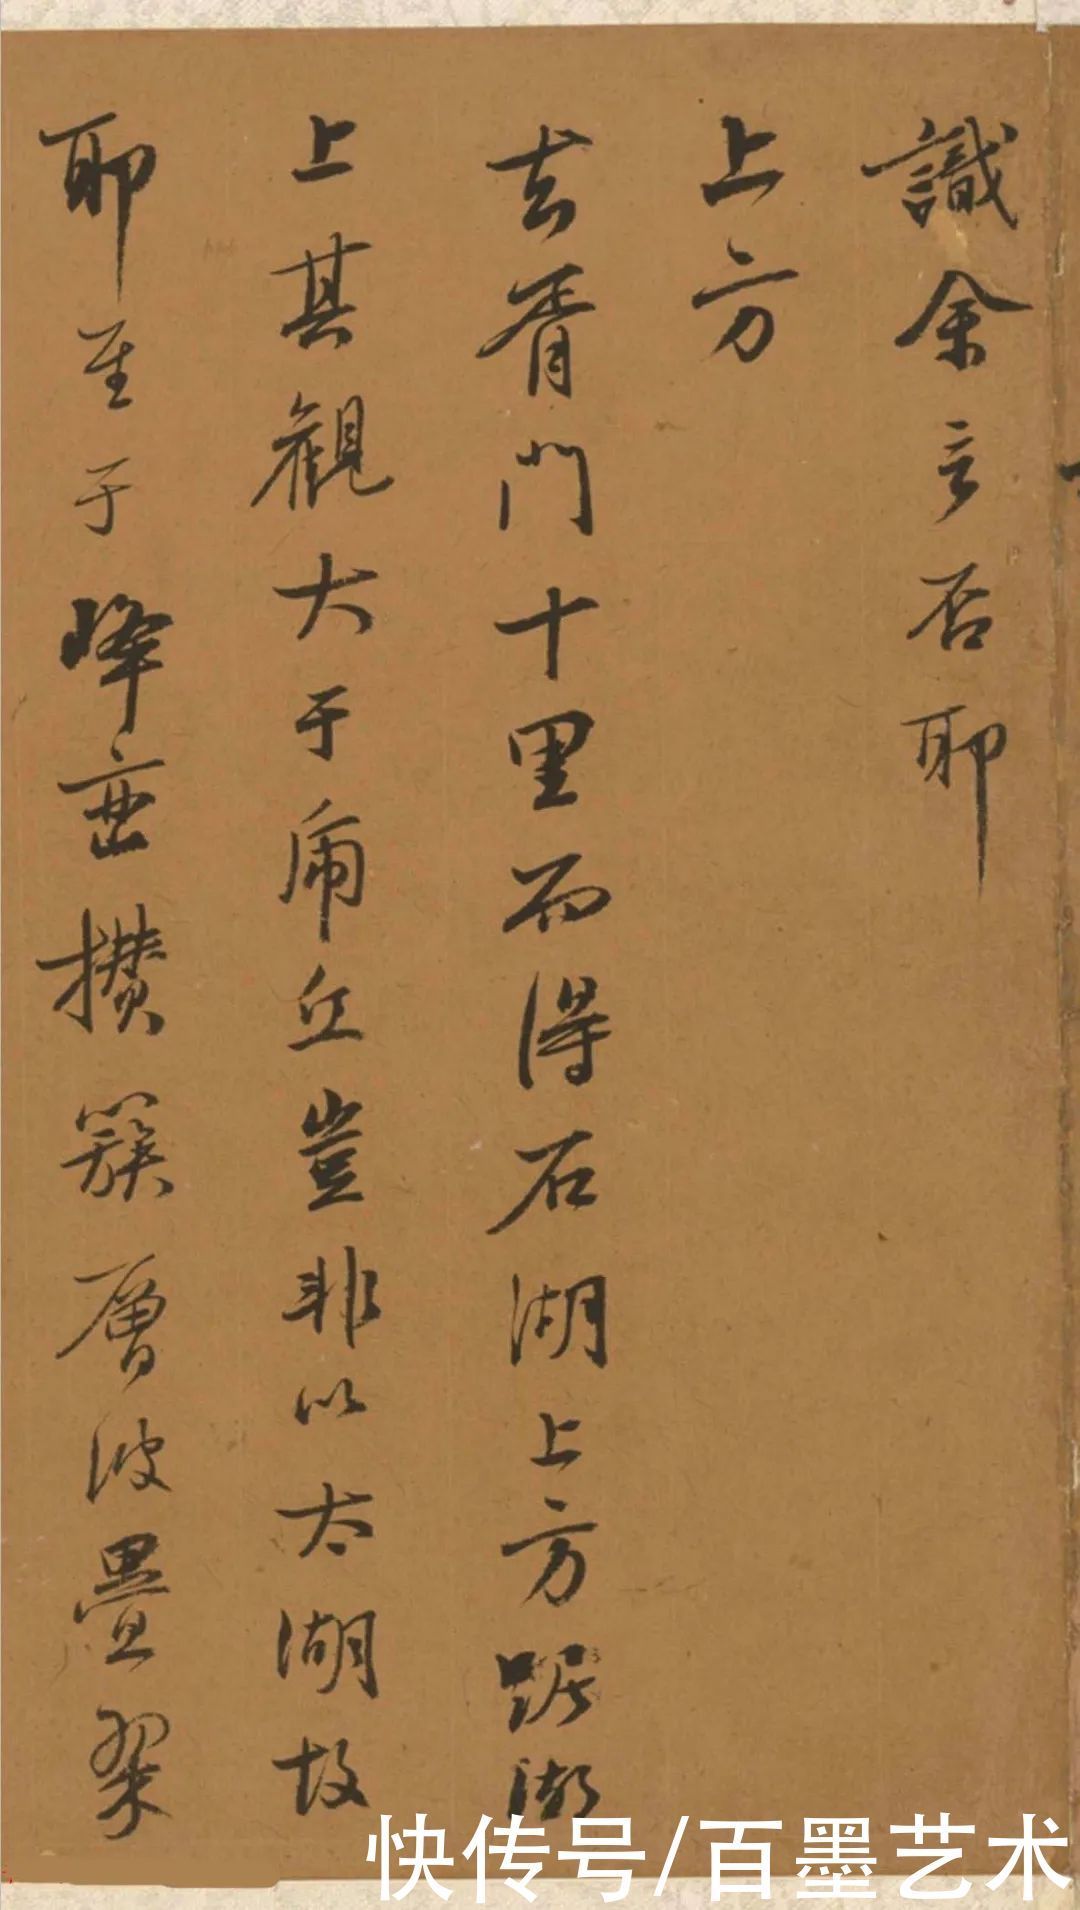 識余言否耶
上方
去胥門十里而得石湖上方踞湖
上其觀大于虎丘豈非以太湖故
耶至于峰巒攢簇層波疊翠
快传号/百墨艺术